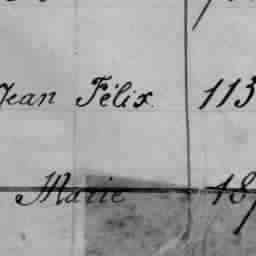 Jean Félix 113
Marie 187